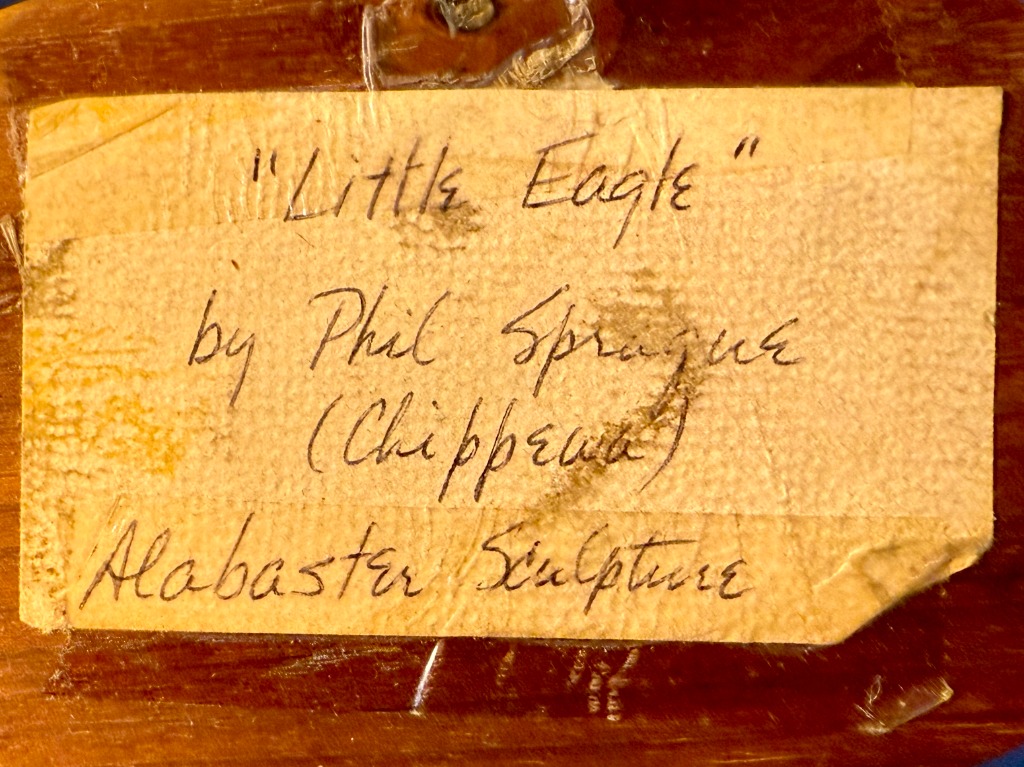 "Little Eagle"
by Phil Sprague
(Chippewa)
Alabaster Sculpture